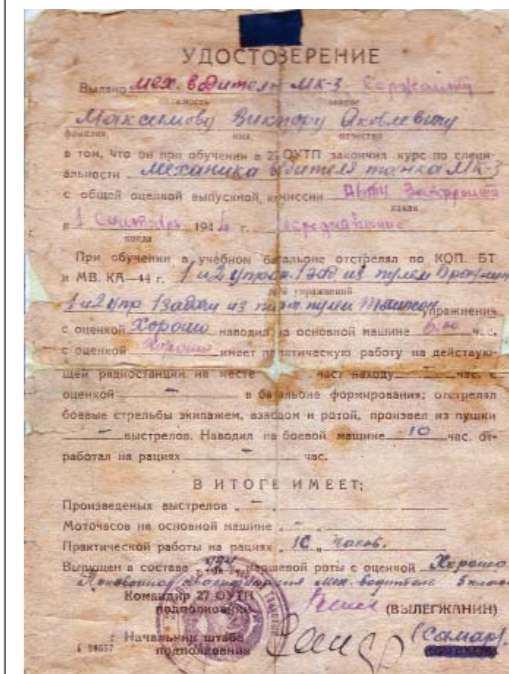 УДОСТОВЕРЕНИЕ
Выдано мех. водителю МК-3 Сержанту
должность звание
Максимову Виктору Яковлевичу
фамилия имя отчество
в том, что он при обучении в 27 ОУТП закончил курс по специ-
альности Механика водителя танка МК-3
с общей оценкой выпускной, комиссии
какая
в 1 Сентябрь 1944 г. посредственно
когда
При обучении в учебном батальоне отстрелял по КОП. БТ
и МВ. КА—44 г. 1 и 2 упраж. 1 зад из пулем
№№ упражнений
1 и 2 упр 1 задачи из пулем упражнения
с оценкой Хорошо наводил на основной машине 6:00 час.
с оценкой Хорошо имеет практическую работу на действую-
щей радиостанции на месте — час. находу — час. с
оценкой — в батальоне формирования; отстрелял
боевые стрельбы экипажем, взводом и ротой, произвел из пушки
— выстрелов. Наводил на боевой машине 10 час. от-
работал на рациях — час.
В ИТОГЕ ИМЕЕТ:
Произведеных выстрелов „ —
Моточасов на основной машине „ — „
Практической работы на рациях „ 10 „ часов.
Выпущен в составе маршевой роты с оценкой Хорошо
мех. водитель
Командир 27 ОУТП
подполковник (ВЫЛЕГЖАНИН)
Начальник штаба
подполковник (Самар